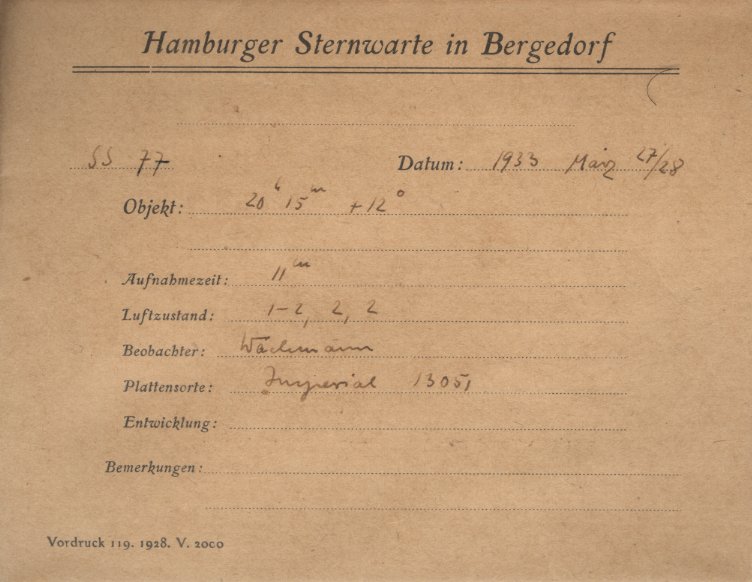 Hamburger Sternwarte in Bergedorf
SS 77 Datum: 1933 März 27/28
Objekt: 20h 15m +12°
Aufnahmezeit: 11m
Luftzustand: 1-2, 2, 2
Beobachter: Wachmann
Plattensorte: Imperial 13051
Entwicklung:
Bemerkungen:
Vordruck 119. 1928. V. 2000